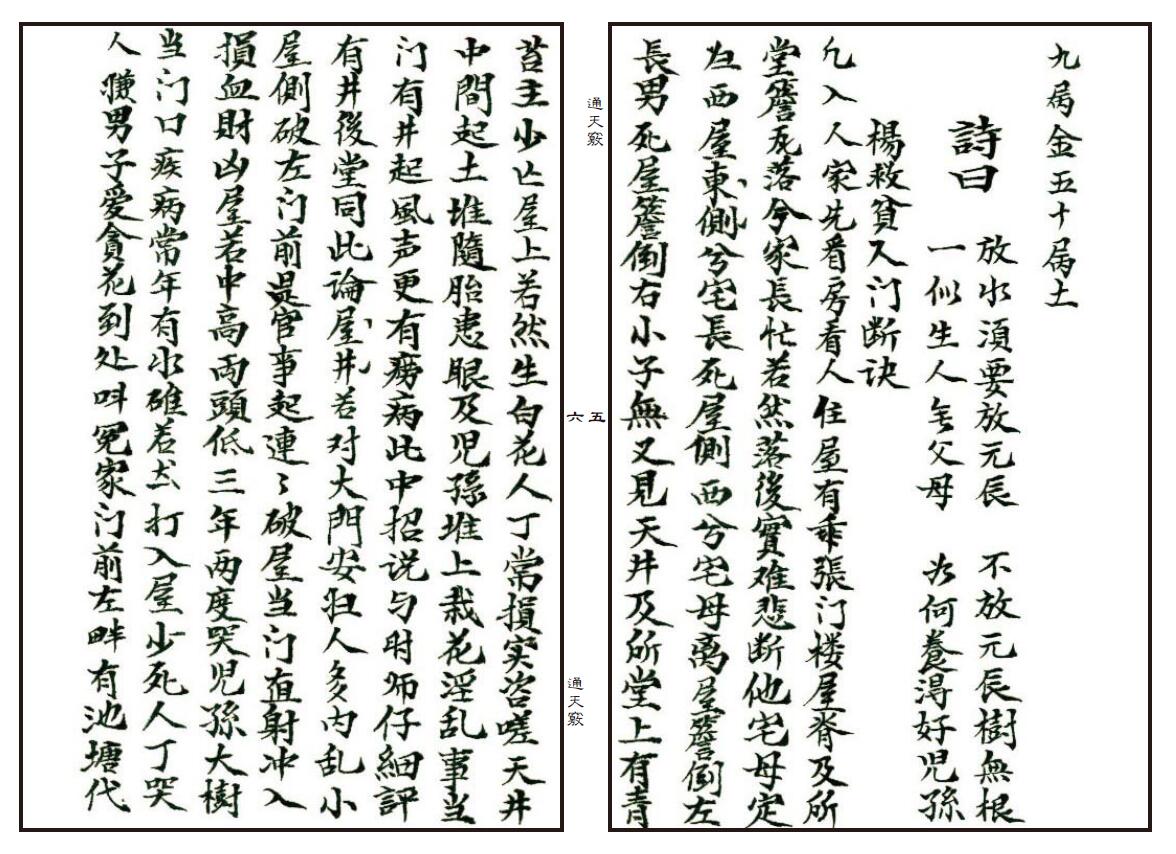 九局金五十局土
詩曰
放水須要放元辰 不放元辰樹無根
一似生人無父母 为何養淂好児孫
楊救貧入门断诀
凢入人家先看房看人住屋有乖張门楼屋脊及所
堂簷瓦落兮家長忙若然落後實难悲断他宅母定
西屋東側兮宅長死屋側西兮宅母离屋簷倒左
長男死屋簷倒右小子無又見天井及所堂上有青
通天竅
五
六
通天竅
苔主少亡屋上若然生白花人丁常損实咨嗟天井
中間起土堆隨胎患眼及児孫堆上栽花淫乱事当
门有井起風声更有痨病此中招说与时师仔細評
有井後堂同此論屋井若对大門安妇人多内乱小
屋側破左门前是官事起連〻破屋当门直射冲入
損血財凶屋若中高両頭低三年两度哭児孫大樹
当门口疾病常年有水碓若打入屋少死人丁哭
人 男子愛貪花到处叫冤家门前左畔有池塘代